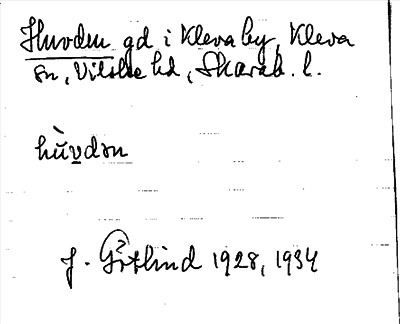 Huvden gd i Kleva by, Kleva
sn, Vilske hd, Skarab. l.
hùvdən
J. Götlind 1928, 1934